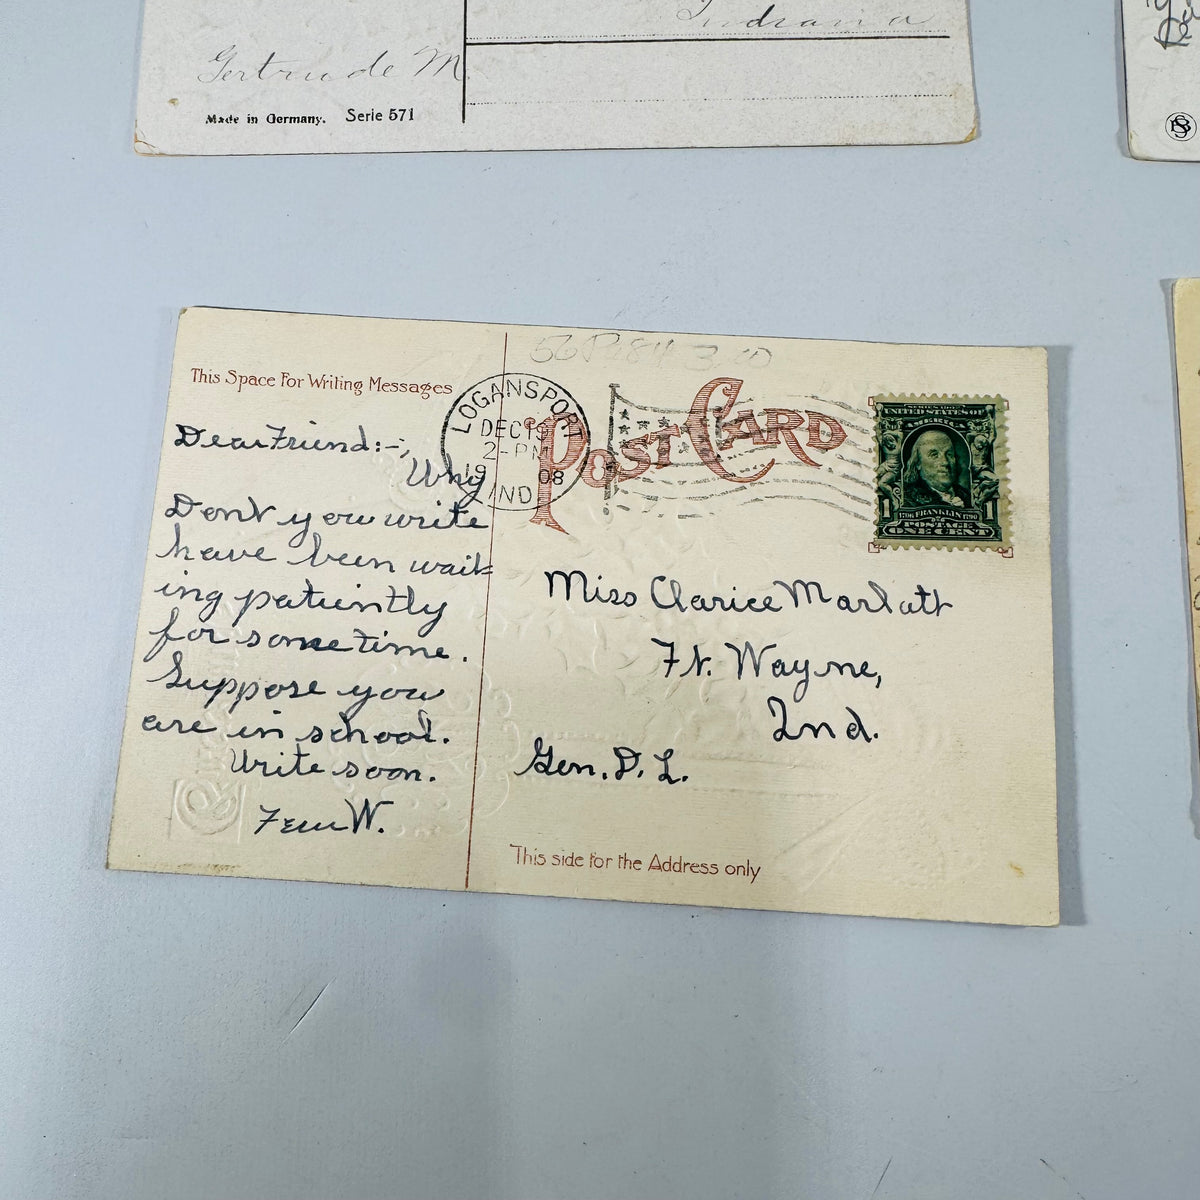 Indiana
Gertrude M
Made in Germany. Serie 571
This Space For Writing Messages
Dear Friend:-,
Why
Dont you write
have been wait=
ing patiently
for sometime.
Suppose you
are in school.
Write soon.
Fern W.
LOGANSPORT
DEC 19
2-PM
19 08
IND.
POST CARD
SERIES 1902
UNITED STATES OF
AMERICA
1 1
1706 FRANKLIN 1790
POSTAGE
ONE CENT
Miss Clarice Marlatt
Ft. Wayne,
Ind.
Gen. D. L.
This side for the Address only